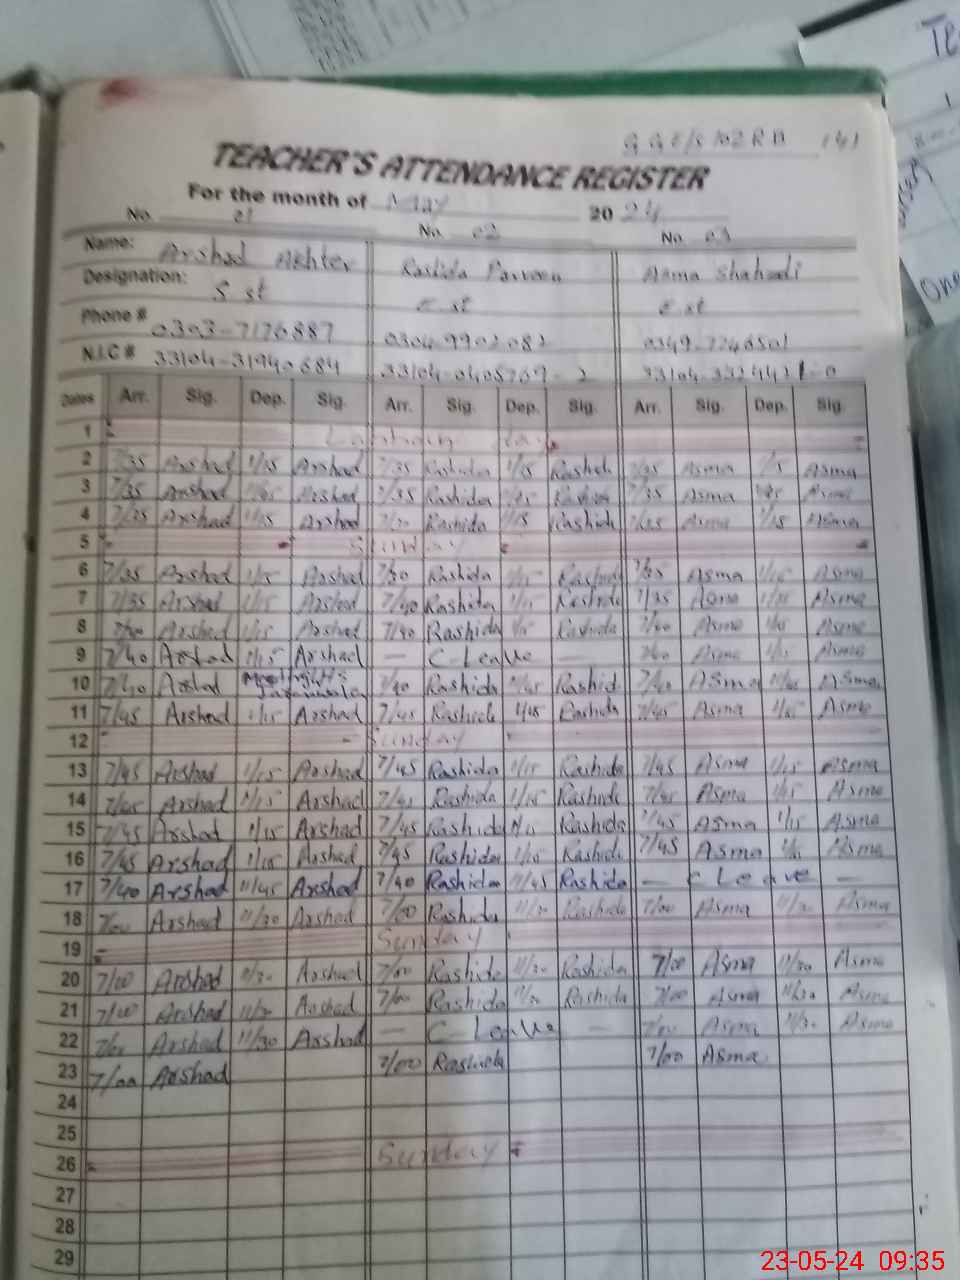 G G E/S 102 R B 141
TEACHER'S ATTENDANCE REGISTER
For the month of May 2024
No. 01 No. 02 No. 03
Name: Arshad Akhter Rashida Parveen Asma Shahadi
Designation: S st E.st E.st
Phone # 0303-7176887 0304 9902082 0349-7246501
N.I.C # 33104-31940684 33104-0405769-2
Dates Arr. Sig. Dep. Sig. Arr. Sig. Dep. Sig. Arr. Sig. Dep. Sig.
1 day
2 7/35 Arshad 1/15 Arshad 7/35 Rashida 1/15 Rashida 7/35 Asma 1/15 Asma
3 7/35 Arshad Arshad 7/35 Rashida Rashida 7/35 Asma Asma
4 7/35 Arshad 1/15 Arshad 7/30 Rashida 1/15 Rashida Asma 1/15 Asma
5 Sunday
6 7/35 Arshad 1/15 Arshad 7/30 Rashida 1/15 Rashida 7/35 Asma 1/15 Asma
7 7/35 Arshad 1/15 Arshad 7/40 Rashida 1/15 Rashida 7/35 Asma Asma
8 7/40 Arshad 1/15 Arshad 7/40 Rashida 1/15 Rashida 7/40 Asma 1/15 Asma
9 7/40 Arshad 1/15 Arshad — C-Leave — 7/40 Asma 1/15 Asma
10 7/40 Arshad 7/40 Rashida Rashid 7/40 Asma Asma
11 7/45 Arshad 1/15 Arshad 7/45 Rashida Rashida 7/45 Asma Asma
12 Sunday
13 7/45 Arshad 1/15 Arshad 7/45 Rashida 1/15 Rashida 7/45 Asma 1/15 Asma
14 7/45 Arshad 1/15 Arshad 7/45 Rashida 1/15 Rashida 7/45 Asma 1/15 Asma
15 7/45 Arshad 1/15 Arshad 7/45 Rashida 1/15 Rashida 7/45 Asma 1/15 Asma
16 7/45 Arshad 1/15 Arshad 7/45 Rashida 1/15 Rashida 7/45 Asma Asma
17 7/40 Arshad 11/45 Arshad 7/40 Rashida 11/45 Rashida — C Leave —
18 7/00 Arshad 11/30 Arshad 7/00 Rashida 11/30 Rashida 7/00 Asma 11/30 Asma
19 Sunday
20 7/00 Arshad 11/30 Arshad 7/00 Rashida 11/30 Rashida 7/00 Asma 11/30 Asma
21 7/00 Arshad 11/30 Arshad 7/00 Rashida 11/30 Rashida 7/00 Asma 11/30 Asma
22 7/00 Arshad 11/30 Arshad — C-Leave — 7/00 Asma 11/30 Asma
23 7/00 Arshad 7/00 Rashida 7/00 Asma
24
25
26 Sunday
27
28
29
23-05-24 09:35